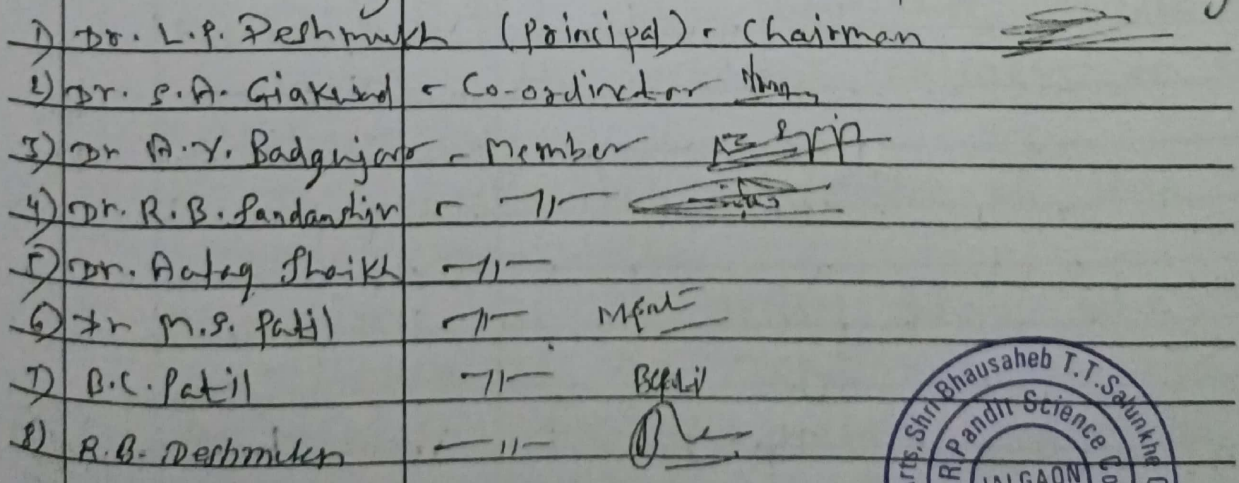 1) Dr. L. P. Deshmukh (Principal) - Chairman
2) Dr. S. A. Giakwad - Co-ordinator
3) Dr A. Y. Badgujar - Member
4) Dr. R. B. Pandanshiv - -11-
5) Dr. Aafaq Shaikh -11-
6) Dr M. S. Patil -11-
7) B. C. Patil -11- BCPatil
8) R. B. Deshmukh -11-
rts, Shri Bhausaheb T.T. Salunkhe C
R. Pandit Science Co
JALGAON